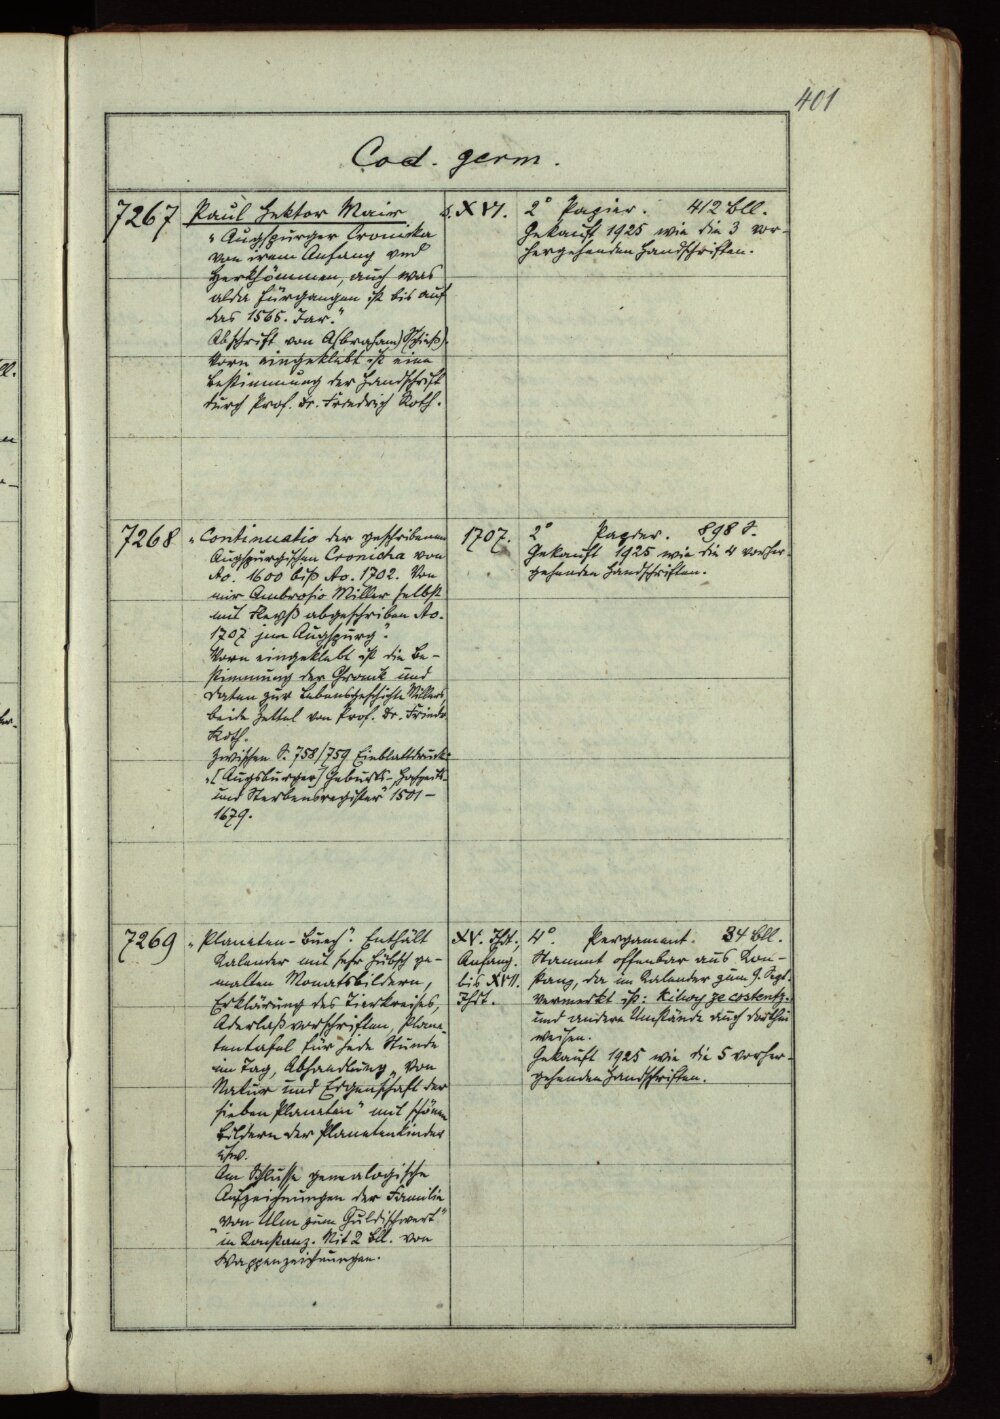 401
Cod. germ.
7267
Paul Hektor Mair
„Augspurger Cronicka
von irem Anfang vnd
Herkhommen, auch was
alda fürgangen ist bis auf
das 1565. Jar."
Abschrift von A(braham) Schieß).
Vorn eingeklebt ist eine
Bestimmung der Handschrift
durch Prof. Dr. Friedrich Roth.
s. XVI.
2° Papier. 412 Bll.
Gekauft 1925 wie die 3 vor-
hergehenden Handschriften.
7268
„Continuatio der geschribenen
Augspurgischen Cronicha von
Ao. 1600 biß Ao. 1702. Von
mir Ambrosio Miller selbst
mit Fleyß abgeschriben Ao.
1707 jnn Augspurg".
Vorn eingeklebt ist die Be-
stimmung der Chronik und
Daten zur Lebensgeschichte Millers
beide Zettel von Prof. Dr. Friedr.
Roth.
Zwischen S. 758/759 Einblattdruck:
„[Augsburger] Geburts-, Hochzeit-
und Sterbensregister" 1501–
1679.
1707.
2° Papier. 898 S.
Gekauft 1925 wie die 4 vorher-
gehenden Handschriften.
7269
„Planeten-Buch". Enthält
Kalender mit sehr hübsch ge-
malten Monatsbildern,
Erklärung des Tierkreises,
Aderlaßvorschriften, Plane-
tentafel für jede Stunde
im Tag, Abhandlung „Von
Natur und Eigenschaft der
sieben Planeten" mit schönen
Bildern der Planetenkinder
usw.
Am Schlusse genealogische
Aufzeichnungen der Familie
„von Ulm zum Guldischwert"
in Konstanz. Mit 2 Bll. von
Wappenzeichnungen.
XV. Jhdt.,
Anfang.
bis XVII.
Jhdt.
4°. Pergament. 34 Bll.
Stammt offenbar aus Kon-
stanz, da im Kalender zum 9. Sept.
vermerkt ist: Kilwy ze costentz.
und andere Umstände auch dorthin
weisen.
Gekauft 1925 wie die 5 vorher-
gehenden Handschriften.